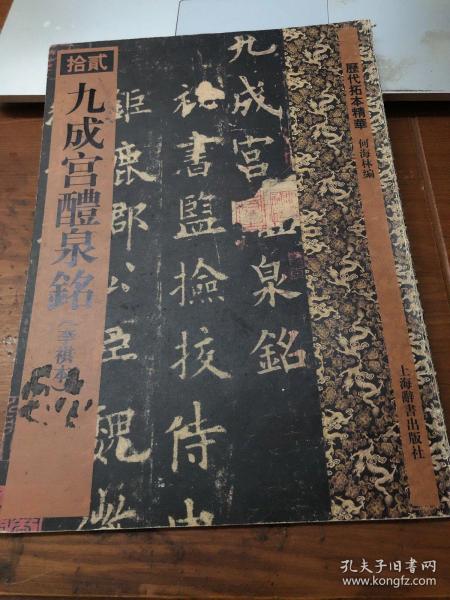 拾貳
九成宫醴泉銘
(李祺本)
九成宫醴泉銘
祕書監撿挍侍中
鉅鹿郡公臣魏
歷代拓本精華
何海林编
上海辭書出版社
孔夫子旧书网
www.kongfz.com